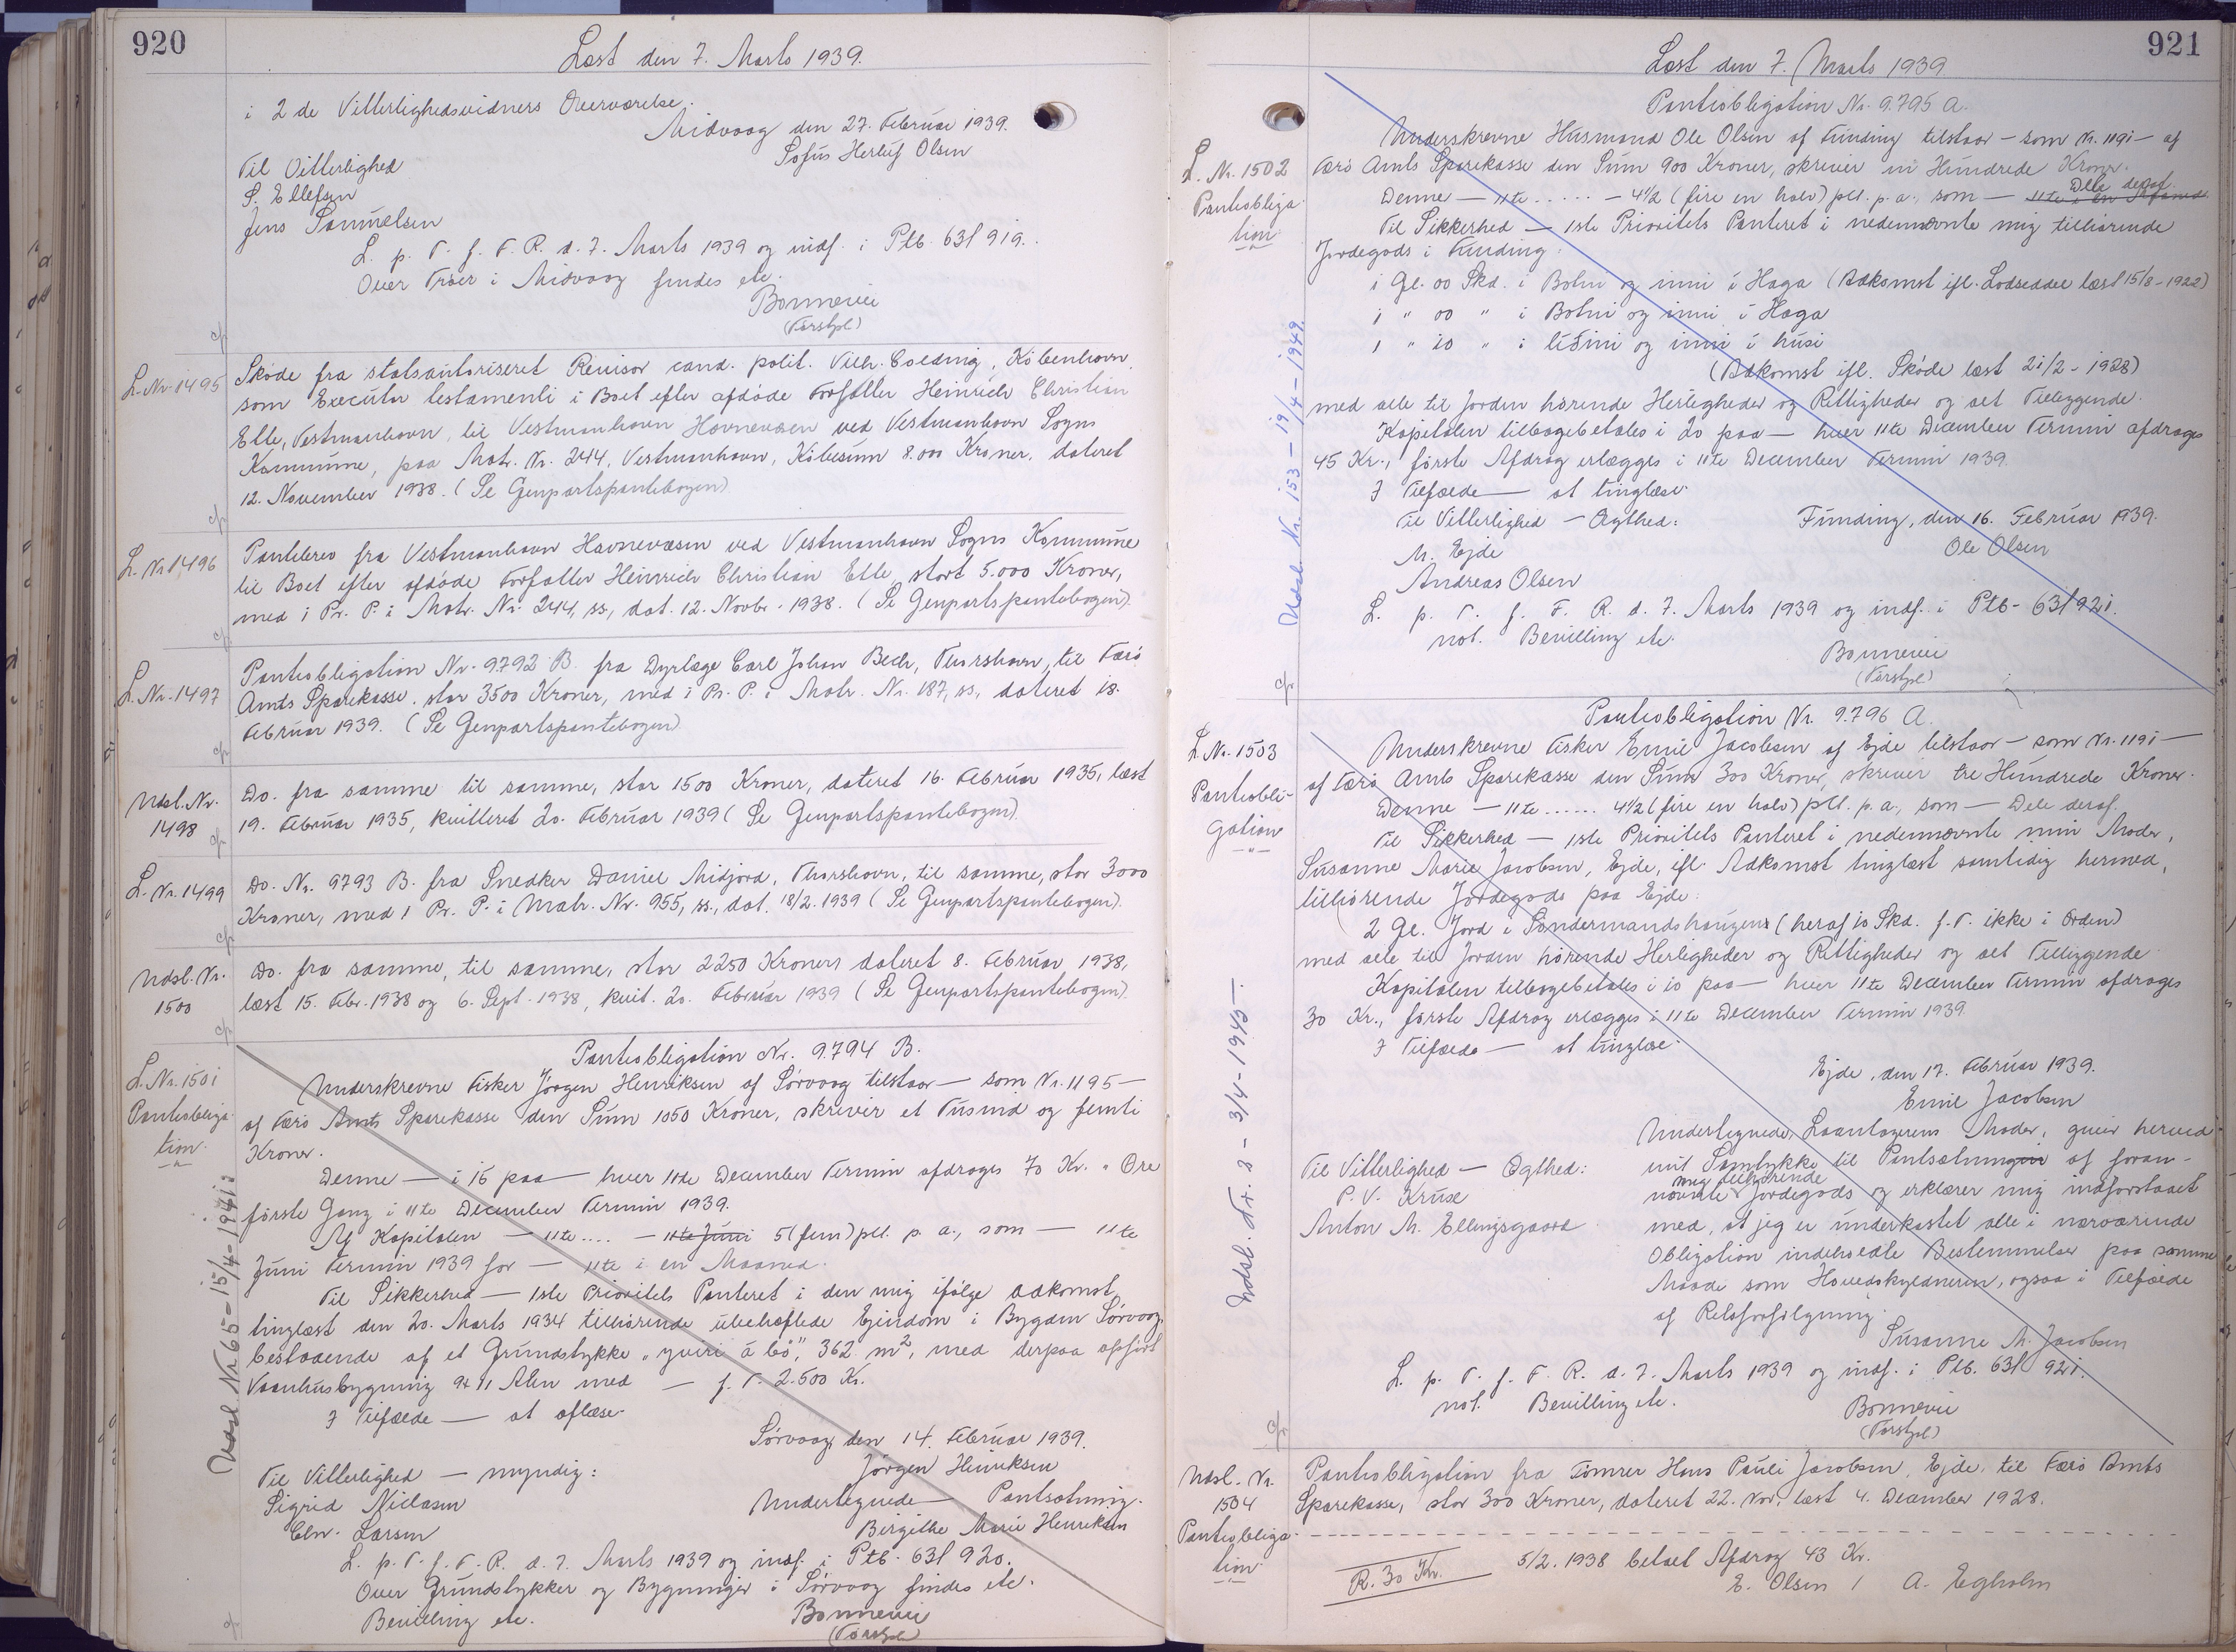 920
Læst den 7. Marts 1939.
i 2 de Vitterlighedsvidners Overværelse.
Midvaag den 27. Februar 1939.
Sofus Herluf Olsen
Til Vitterlighed
S. Ellefsen
Jens Samuelsen
L. p. T. f. F. R. d. 7. Marts 1939 og indf. i Ptb. 63f 919.
Over Trøer i Midvaag findes etc.
Bonnevie
(Færstpl)
L. Nr. 1495
Skøde fra statsautoriseret Revisor cand. polit. Vilh. Colding, København
som Executor testamenti i Boet efter afdøde Forfatter Heinrich Christian
Elle, Vestmanhavn, til Vestmanhavn Havnevæsen ved Vestmanhavn Sogns
Kommune, paa Matr. Nr. 244, Vestmanhavn, Købesum 8.000 Kroner, dateret
12. November 1938. (Se Genpartspantebogen)
L. Nr. 1496
Pantebrev fra Vestmanhavn Havnevæsen ved Vestmanhavn Sogns Kommune
til Boet efter afdøde Forfatter Heinrich Christian Elle stort 5.000 Kroner,
med 1 Pr. P. i Matr. Nr. 244, ss., dat. 12. Novbr. 1938. (Se Genpartspantebogen)
L. Nr. 1497
Panteobligation Nr. 9792 B. fra Dyrlæge Carl Johan Bech, Thorshavn, til Færø
Amts Sparekasse, stor 3500 Kroner, med 1 Pr. P. i Matr. Nr. 187, ss., dateret 18.
Februar 1939. (Se Genpartspantebogen)
Udsl. Nr.
1498
Do. fra samme til samme, stor 1500 Kroner, dateret 16. Februar 1935, læst
19. Februar 1935, kvitteret 20. Februar 1939 (Se Genpartspantebogen)
L. Nr. 1499
Do. Nr. 9793 B. fra Snedker Daniel Midjord, Thorshavn, til samme, stor 3000
Kroner, med 1 Pr. P. i Matr. Nr. 955, ss., dat. 18/2. 1939 (Se Genpartspantebogen).
Udsl. Nr.
1500
Do. fra samme, til samme, stor 2250 Kroners dateret 8. Februar 1938,
læst 15. Febr. 1938 og 6. Sept. 1938, kvit. 20. Februar 1939 (Se Genpartspantebogen)
L. Nr. 1501
Panteobliga-
tion.
Panteobligation Nr. 9794 B.
Underskrevne Fisker Jørgen Henriksen af Sørvaag tilstaar – som Nr. 1195 –
af Færø Amts Sparekasse den Sum 1050 Kroner, skriver et Tusind og femti
Kroner.
Denne — i 15 paa — hver 11te December Termin afdrages 70 Kr. " Øre
første Gang i 11te December Termin 1939.
Af Kapitalen — 11te .... — 11te Juni 5 (fem) pCt. p. a., som — 11te
Juni Termin 1939 for — 11te i en Maaned.
Til Sikkerhed — 1ste Prioritets Panteret i den mig ifølge Adkomst
tinglæst den 20. Marts 1934 tilhørende ubehæftede Ejendom i Bygden Sørvaag,
bestaaende af et Grundstykke „yviri á bø", 362 m², med derpaa opført
Vaanhusbygning 9x11 Alen med — f. T. 2.500 Kr.
I Tilfælde — at aflæse.
Sørvaag, den 14. Februar 1939.
Jørgen Henriksen
Til Vitterlighed — myndig:
Sigrid Niclasen
Chr. Larsen
Undertegnede — Pantsætning.
Birgithe Marie Henriksen
L. p. T. f. F. R. d. 7. Marts 1939 og indf. i Ptb. 63f 920.
Over Grundstykker og Bygninger i Sørvaag findes etc.
Bevilling etc.
Bonnevie
(Færstpl)
Udsl. Nr 65 – 15/4 – 1941:
921
Læst den 7. Marts 1939
L. Nr. 1502
Panteobliga-
tion
Panteobligation Nr. 9.795 A.
Underskrevne Husmand Ole Olsen af Funding tilstaar – som Nr. 1191 – af
Færø Amts Sparekasse den Sum 900 Kroner, skriver ni Hundrede Kroner.
Denne — 11te ..... — 4½ (fire en halv) pCt. p. a., som — Dele deraf.
Til Sikkerhed — 1ste Prioritets Panteret i nedennævnte mig tilhørende
Jordegods i Funding:
1 Gl. 00 Skd. i Botni og inni í Haga (Adkomst ifl. Lodseddel læst 15/8 – 1922)
1 " 00 " i Botni og inni í Haga
1 " 10 " i líðini og inni í húsi
(Adkomst ifl. Skøde læst 21/2 – 1928)
med alle til Jorden hørende Herligheder og Rettigheder og alt Tilliggende.
Kapitalen tilbagebetales i 20 paa — hver 11te December Termin afdrages
45 Kr., første Afdrag erlægges i 11te December Termin 1939.
I Tilfælde — at tinglæse.
Til Vitterlighed – Ægthed:
M. Ejde
Andreas Olsen
Funding, den 16. Februar 1939.
Ole Olsen
L. p. T. f. F. R. d. 7. Marts 1939 og indf. i Ptb. 63f 921.
not. Bevilling etc.
Bonnevie
(Færstpl)
Udsl. Nr. 153 – 19/4 – 1949
L. Nr. 1503
Panteobli-
gation
Panteobligation Nr. 9.796 A.
Underskrevne Fisker Emil Jacobsen af Ejde tilstaar – som Nr. 1191 –
af Færø Amts Sparekasse den Sum 300 Kroner, skriver tre Hundrede Kroner.
Denne — 11te ...... 4½ (fire en halv) pCt. p. a., som — Dele deraf.
Til Sikkerhed — 1ste Prioritets Panteret i nedennævnte min Moder,
Susanne Marie Jacobsen, Ejde, ifl. Adkomst tinglæst samtidig hermed,
tilhørende Jordegods paa Ejde:
2 Gl. Jord i Søndermandshougens (heraf 10 Skd. f. T. ikke i Orden)
med alle til Jorden hørende Herligheder og Rettigheder og alt Tilliggende
Kapitalen tilbagebetales i 10 paa — hver 11te December Termin afdrages
30 Kr., første Afdrag erlægges i 11te December Termin 1939.
I Tilfælde — at tinglæse.
Ejde, den 17. Februar 1939.
Emil Jacobsen
Til Vitterlighed — Ægthed:
P. V. Kruse
Anton M. Ellingsgaard
Undertegnede, Laantagerens Moder, giver herved
mit Samtykke til Pantsætningen af foran-
mig tilhørende
nævnte Jordegods og erklærer mig indforstaaet
med, at jeg er underkastet alle i nærværende
Obligation indeholdte Bestemmelser paa samme
Maade som Hovedskyldneren, ogsaa i Tilfælde
af Retsforfølgning.
Susanne M. Jacobsen
L. p. T. f. F. R. d. 7. Marts 1939 og indf. i Ptb. 63f 921.
not. Bevilling etc.
Bonnevie
(Færstpl)
Udsl. Nr. 2 – 3/4 – 1945 –
Udsl. Nr.
1504
Panteobliga-
tion
Panteobligation fra Tømrer Hans Pauli Jacobsen, Ejde, til Færø Amts
Sparekasse, stor 300 Kroner, dateret 22. Nov., læst 4. December 1928.
R. 30 Kr.
5/2. 1938 betalt Afdrag 43 Kr.
E. Olsen / A. Egholm